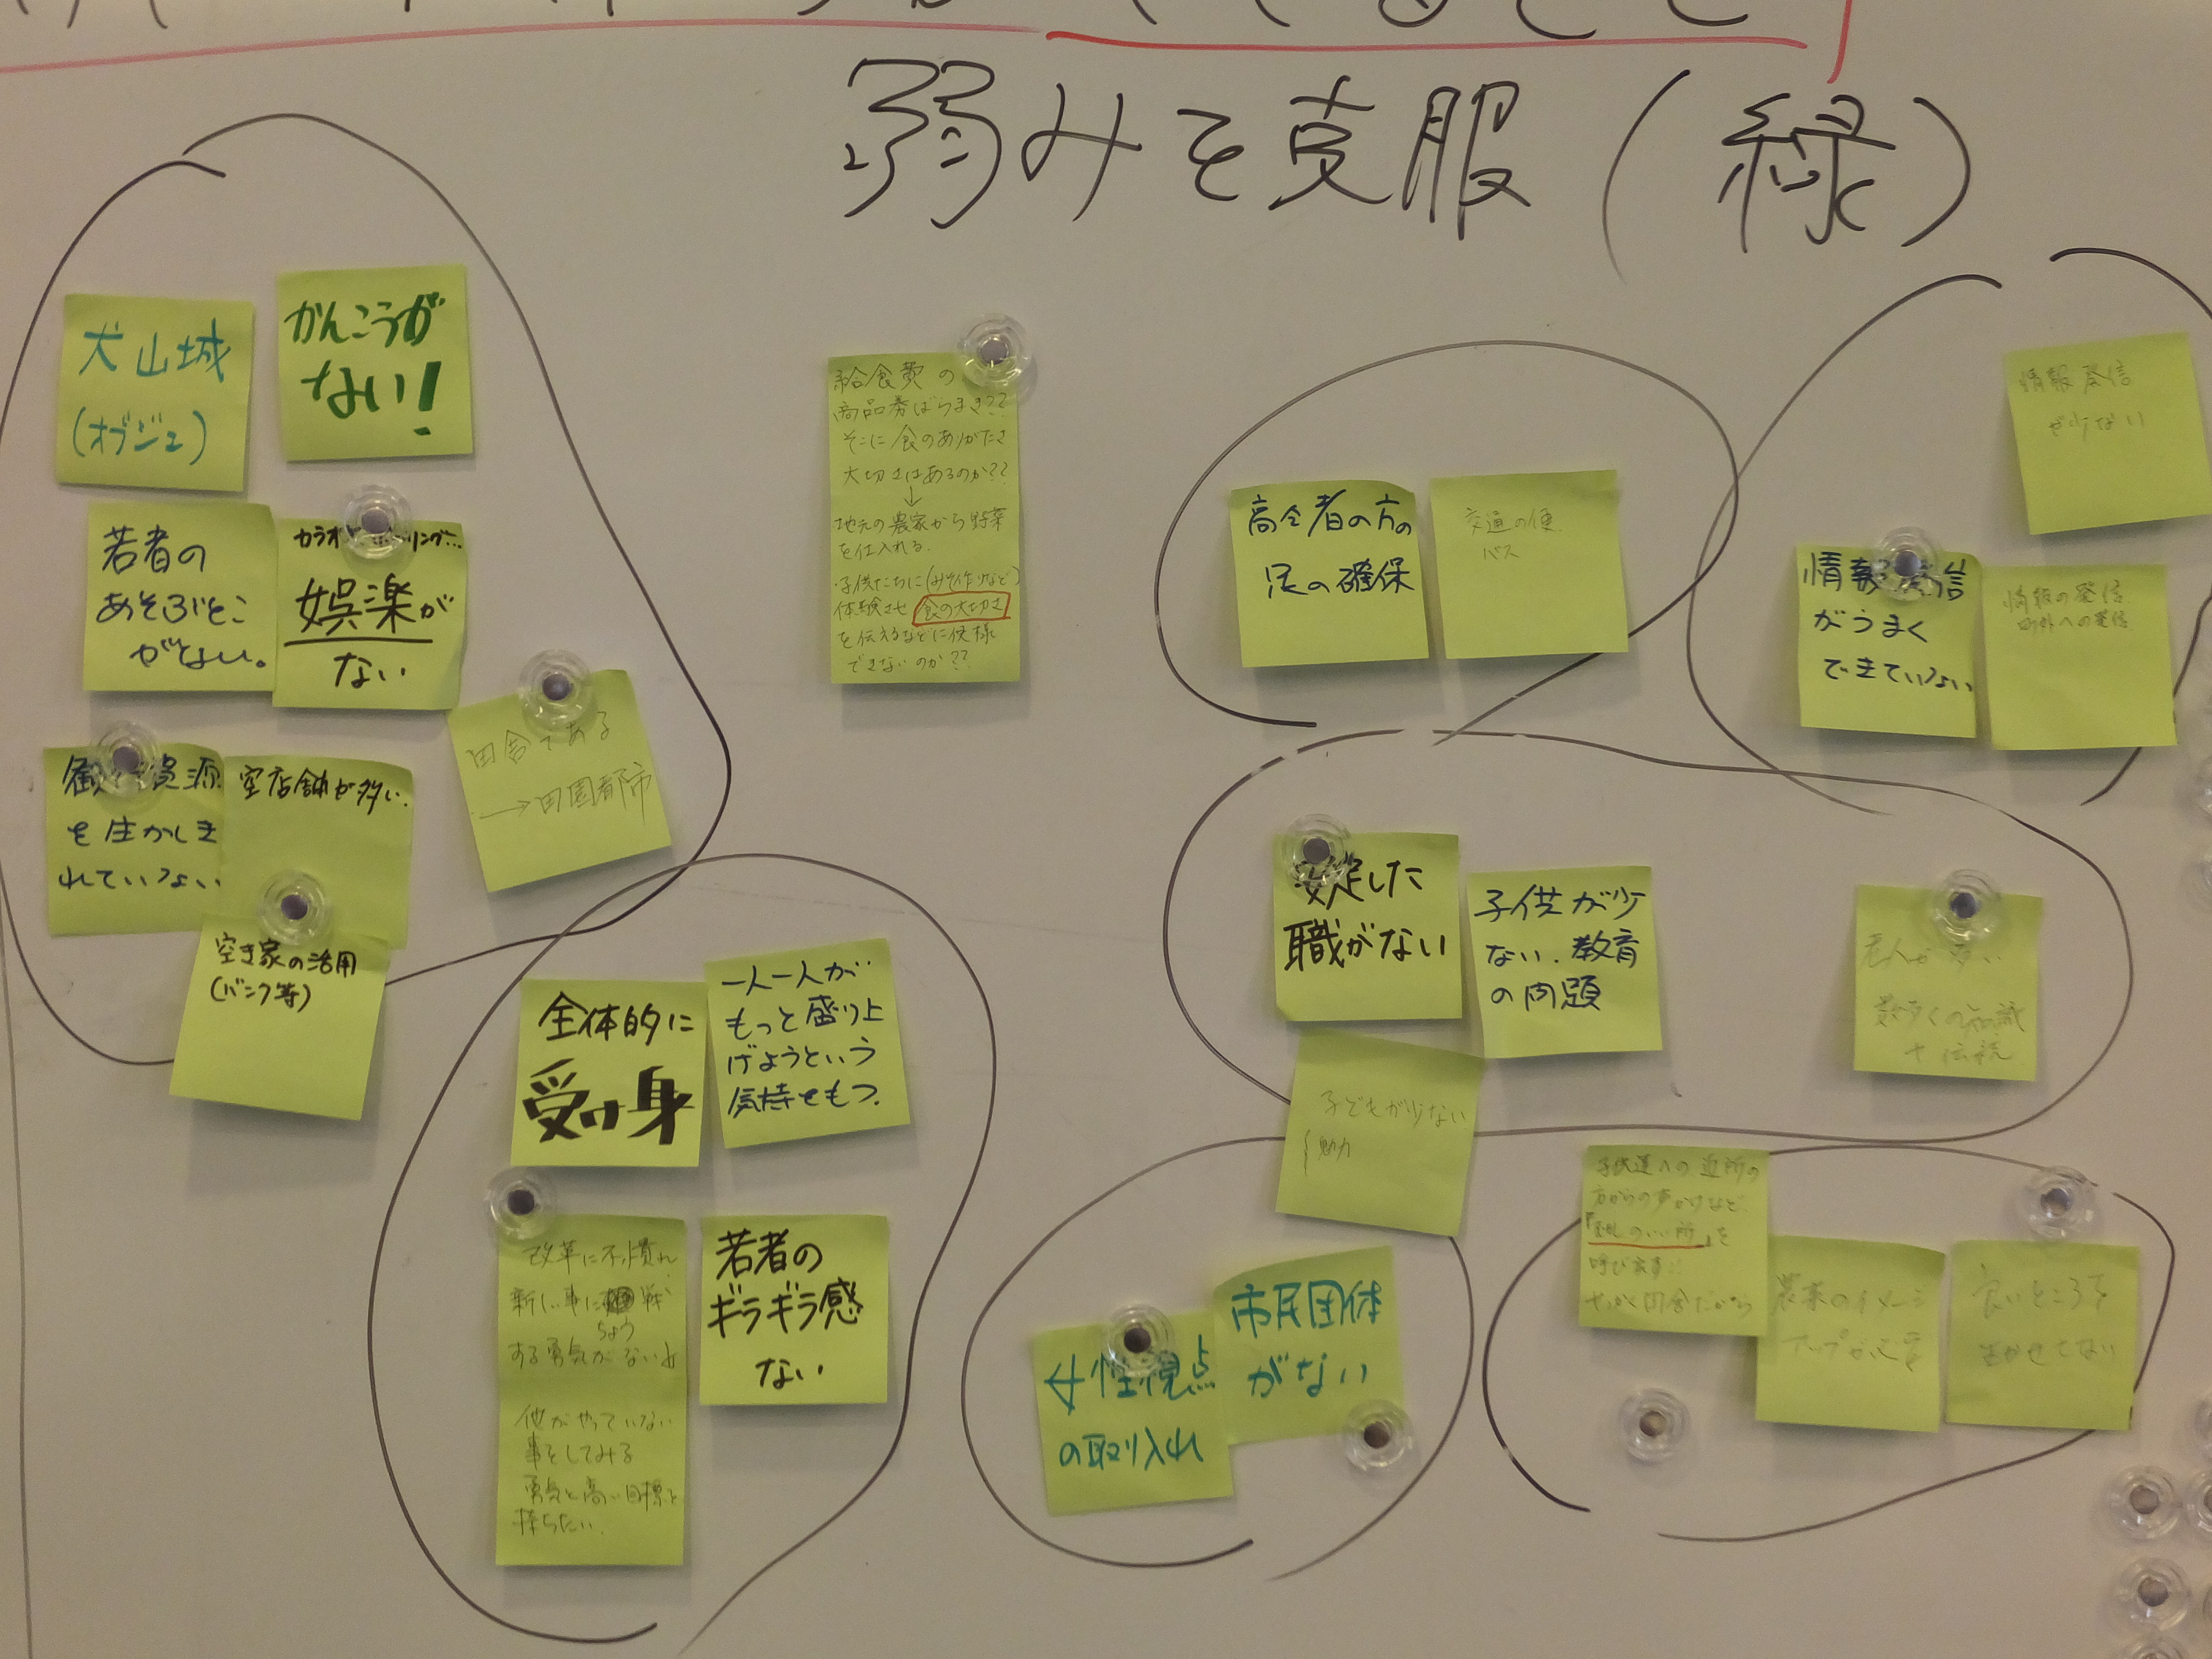 弱みを克服(緑)
犬山城
(オブジェ)
かんこうが
ない!
若者の
あそぶとこ
がない。
娯楽が
ない
田舎である
→田園都市
を生かしき
れていない
空店舗が多い.
空き家の活用
(バンク等)
給食費の
商品券ばらまき??
そこに食のありがたさ
大切さはあるのか??
↓
地元の農家から野菜
を仕入れる.
・子供たちに(みそ作りなど)
体験させ 食の大切さ
を伝えるなどに
できないのか??
高令者の方の
足の確保
交通の便
バス
情報発信
が少ない
情報発信
がうまく
できていない
情報の発信
町外への発信
全体的に
受け身
一人一人が
もっと盛り上
げようという
気持をもつ.
改革に不慣れ
新しい事に
する勇気がない
他がやっていない
事をしてみる
勇気と高い目標を
持ちたい.
若者の
ギラギラ感
ない
安定した
職がない
子供が少
ない.教育
の問題
子どもが少ない
老人が多い
女性視点
の取り入れ
市民団体
がない
子供達への近所の
方からの声かけなど
呼び戻す!!
農業のイメージ
アップが必要
良いところを
生かせてない